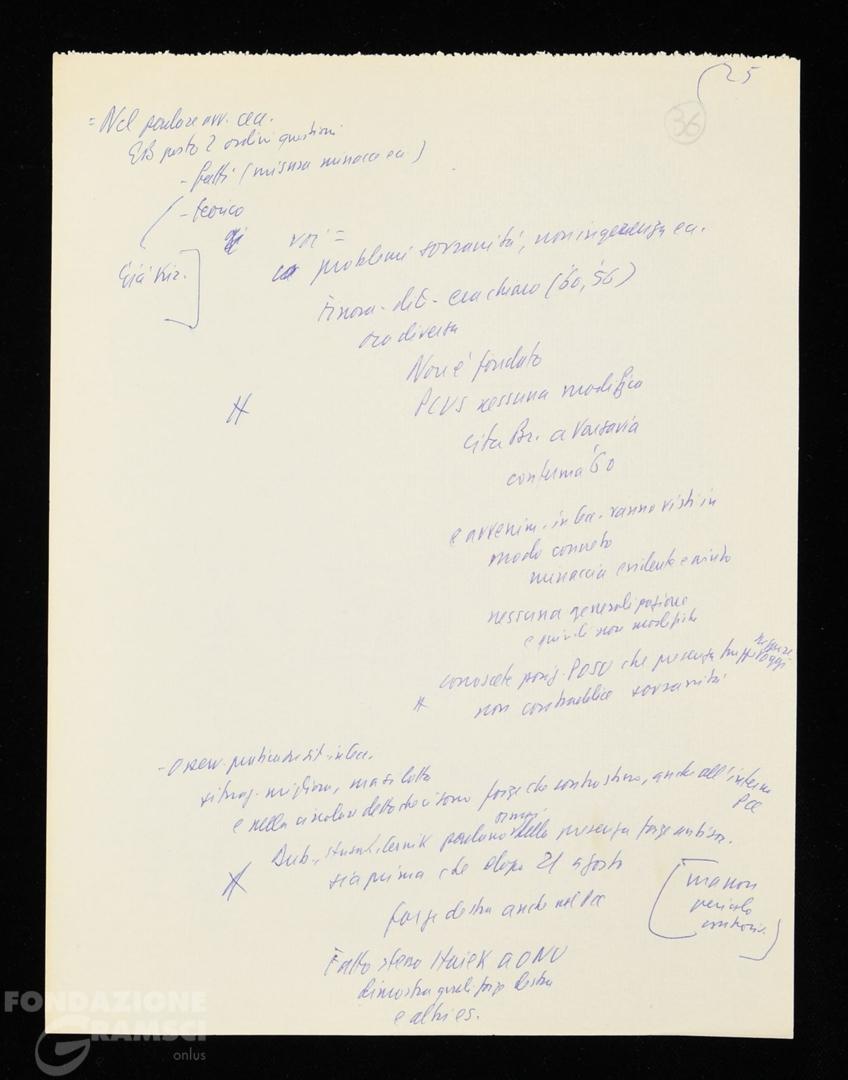 25
36
= Nel parlare avv. cec.
EB posto 2 ordini questioni
- fatti (misura minacce ec.)
- teorico
voi =
Già Kir.
problemi sovranità, non ingerenza ec.
Finora - dite - era chiaro (60, 56)
ora diversa
Non è fondato
PCUS nessuna modifica
cita Br. a Varsavia
conferma 60
e avvenim. in Cec. vanno visti in
modo concreto
minaccia evidente e
nessuna generalizzazione
e quindi non modifiche
conoscete posiz. POSU che presenza truppe
neppure oggi
non contraddice sovranità
- Osserv. sit. in Cec.
situaz. migliora, ma si lotta
e nella circolare detto che ci sono forze che contrastano, anche all'interno
PCC
Dub., Cernik parlano della presenza forze antisoc.
ormai
sia prima che dopo 21 agosto
forze destra anche nel PCC
ma non
pericolo
Fatto stesso Haiek a ONU
dimostra quali forze destra
e altri es.
FONDAZIONE
GRAMSCI
onlus